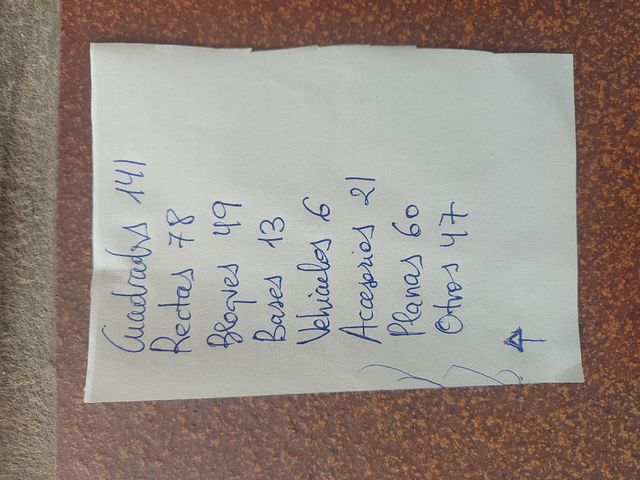 Cuadrados 141
Rectas 78
Bloques 49
Bases 13
Vehiculos 6
Accesorios 21
Planas 60
Otros 47